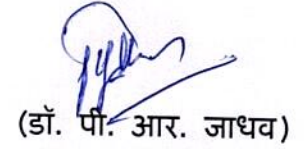 (डॉ. पी. आर. जाधव)